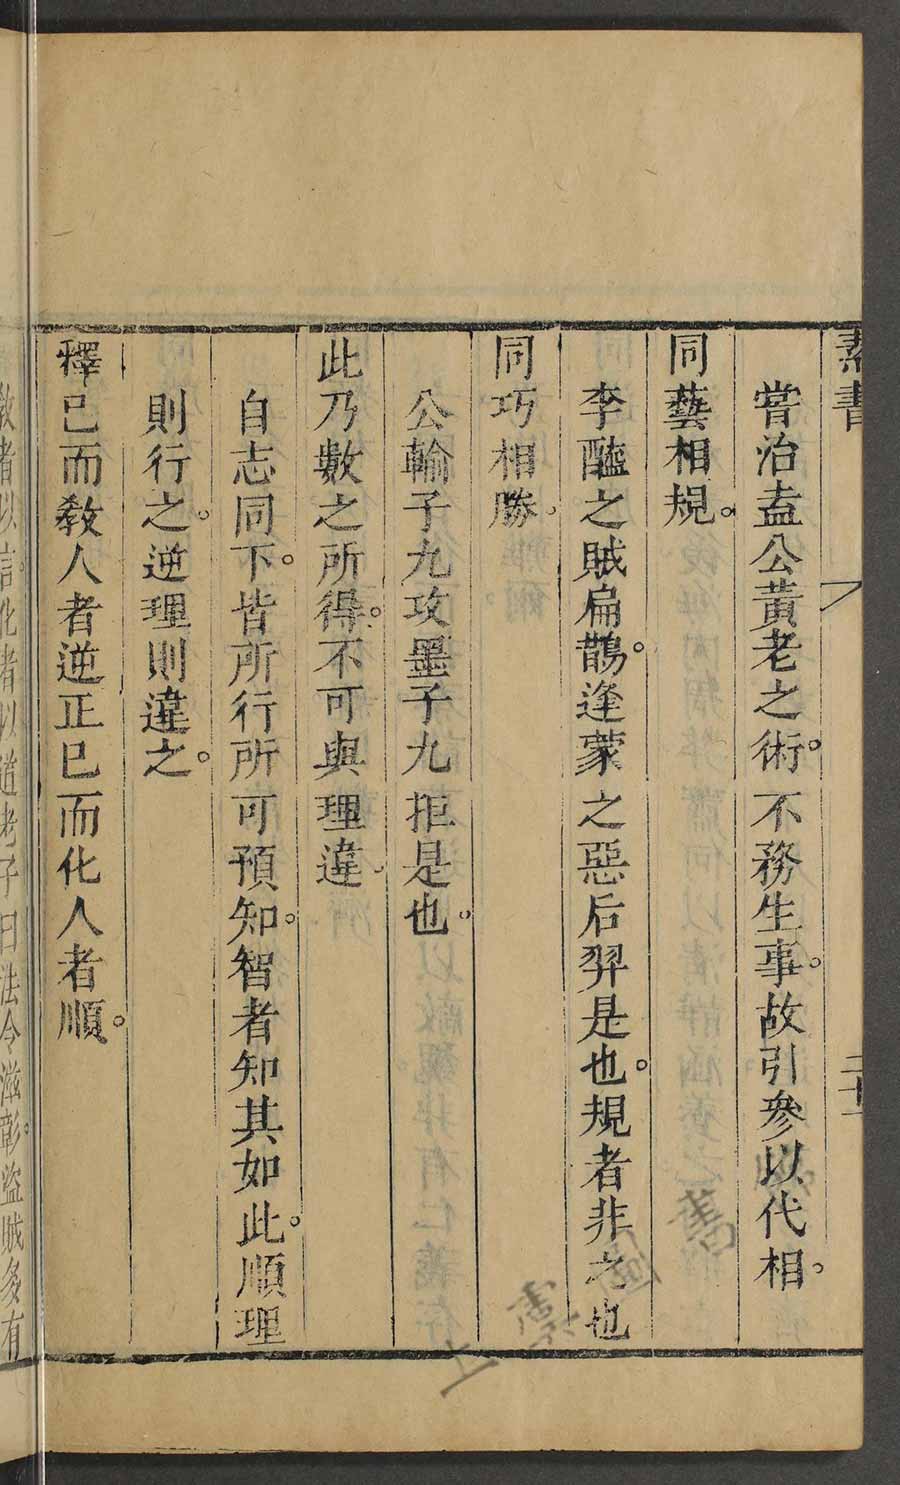 素書
二十
嘗治盍公黃老之術。不務生事。故引參以代相。
同藝相規。
李醯之賊扁鵲。逄蒙之惡后羿是也。規者非之也
同巧相勝。
公輸子九攻墨子九拒是也。
此乃數之所得。不可與理違。
自志同下。皆所行所可預知。智者知其如此。順理
則行之。逆理則違之。
釋已而敎人者逆正已而化人者順。
敎者以言。化者以道老子曰法令滋彰。盜賊多有